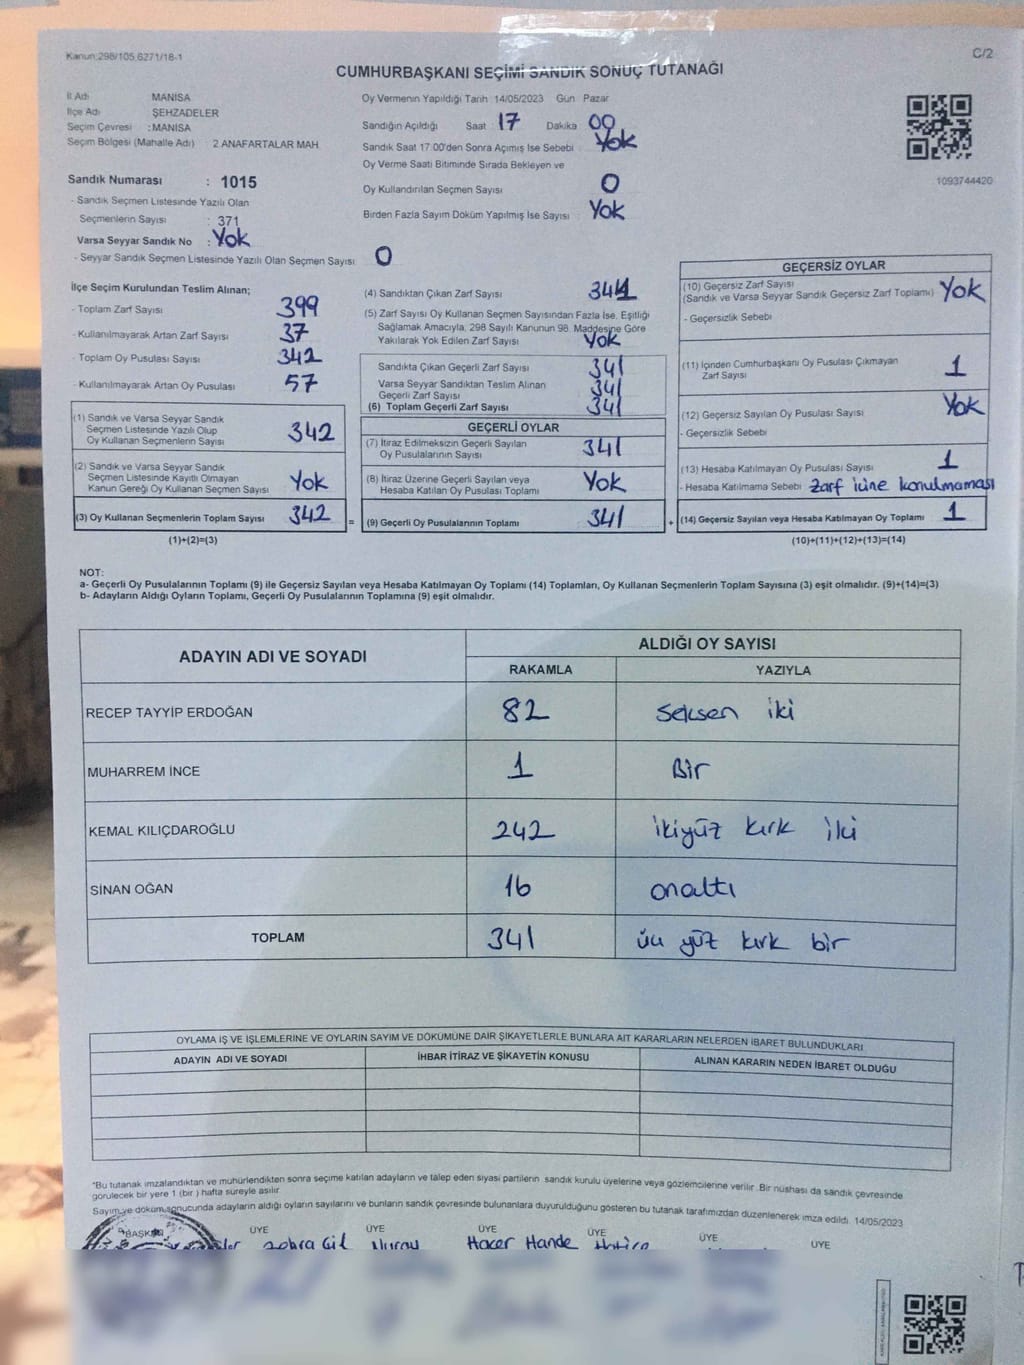 Kanun:298/105,6271/18-1
C/2
CUMHURBAŞKANI SEÇİMİ SANDIK SONUÇ TUTANAĞI
İl Adı MANİSA
İlçe Adı ŞEHZADELER
Seçim Çevresi : MANİSA
Seçim Bölgesi (Mahalle Adı) 2 ANAFARTALAR MAH.
Sandık Numarası : 1015
- Sandık Seçmen Listesinde Yazılı Olan
Seçmenlerin Sayısı : 371
Varsa Seyyar Sandık No : Yok
- Seyyar Sandık Seçmen Listesinde Yazılı Olan Seçmen Sayısı 0
Oy Vermenin Yapıldığı Tarih 14/05/2023 Gün Pazar
Sandığın Açıldığı Saat 17 Dakika 00
Sandık Saat 17:00'den Sonra Açımış İse Sebebi : Yok
Oy Verme Saati Bitiminde Sırada Bekleyen ve
Oy Kullandırılan Seçmen Sayısı 0
Birden Fazla Sayım Döküm Yapılmış İse Sayısı : Yok
1093744420
İlçe Seçim Kurulundan Teslim Alınan;
- Toplam Zarf Sayısı 399
- Kullanılmayarak Artan Zarf Sayısı 37
- Toplam Oy Pusulası Sayısı 342
- Kullanılmayarak Artan Oy Pusulası 57
(1) Sandık ve Varsa Seyyar Sandık
Seçmen Listesinde Yazılı Olup
Oy Kullanan Seçmenlerin Sayısı 342
(2) Sandık ve Varsa Seyyar Sandık
Seçmen Listesinde Kayıtlı Olmayan
Kanun Gereği Oy Kullanan Seçmen Sayısı Yok
(3) Oy Kullanan Seçmenlerin Toplam Sayısı 342 =
(1)+(2)=(3)
(4) Sandıktan Çıkan Zarf Sayısı 341
(5) Zarf Sayısı Oy Kullanan Seçmen Sayısından Fazla İse, Eşitliği
Sağlamak Amacıyla, 298 Sayılı Kanunun 98. Maddesine Göre
Yakılarak Yok Edilen Zarf Sayısı Yok
Sandıkta Çıkan Geçerli Zarf Sayısı 341
Varsa Seyyar Sandıktan Teslim Alınan
Geçerli Zarf Sayısı 341
(6) Toplam Geçerli Zarf Sayısı 341
GEÇERLİ OYLAR
(7) İtiraz Edilmeksizin Geçerli Sayılan
Oy Pusulalarının Sayısı 341
(8) İtiraz Üzerine Geçerli Sayılan veya
Hesaba Katılan Oy Pusulası Toplamı Yok
(9) Geçerli Oy Pusulalarının Toplamı 341 +
GEÇERSİZ OYLAR
(10) Geçersiz Zarf Sayısı Yok
(Sandık ve Varsa Seyyar Sandık Geçersiz Zarf Toplamı)
- Geçersizlik Sebebi
(11) İçinden Cumhurbaşkanı Oy Pusulası Çıkmayan
Zarf Sayısı 1
(12) Geçersiz Sayılan Oy Pusulası Sayısı Yok
- Geçersizlik Sebebi
(13) Hesaba Katılmayan Oy Pusulası Sayısı 1
- Hesaba Katılmama Sebebi Zarf içine konulmaması
(14) Geçersiz Sayılan veya Hesaba Katılmayan Oy Toplamı 1
(10)+(11)+(12)+(13)=(14)
NOT:
a- Geçerli Oy Pusulalarının Toplamı (9) ile Geçersiz Sayılan veya Hesaba Katılmayan Oy Toplamı (14) Toplamları, Oy Kullanan Seçmenlerin Toplam Sayısına (3) eşit olmalıdır. (9)+(14)=(3)
b- Adayların Aldığı Oyların Toplamı, Geçerli Oy Pusulalarının Toplamına (9) eşit olmalıdır.
ADAYIN ADI VE SOYADI
ALDIĞI OY SAYISI
RAKAMLA YAZIYLA
RECEP TAYYİP ERDOĞAN 82 seksen iki
MUHARREM İNCE 1 Bir
KEMAL KILIÇDAROĞLU 242 ikiyüz kırk iki
SİNAN OĞAN 16 onaltı
TOPLAM 341 üç yüz kırk bir
OYLAMA İŞ VE İŞLEMLERİNE VE OYLARIN SAYIM VE DÖKÜMÜNE DAİR ŞİKAYETLERLE BUNLARA AİT KARARLARIN NELERDEN İBARET BULUNDUKLARI
ADAYIN ADI VE SOYADI İHBAR İTİRAZ VE ŞİKAYETİN KONUSU ALINAN KARARIN NEDEN İBARET OLDUĞU
*Bu tutanak imzalandıktan ve mühürlendikten sonra seçime katılan adayların ve talep eden siyasi partilerin sandık kurulu üyelerine veya gözlemcilerine verilir. Bir nüshası da sandık çevresinde
görülecek bir yere 1 (bir ) hafta süreyle asılır.
Sayım ve döküm sonucunda adayların aldığı oyların sayılarını ve bunların sandık çevresinde bulunanlara duyurulduğunu gösteren bu tutanak tarafımızdan düzenlenerek imza edildi. 14/05/2023
BAŞKAN ÜYE ÜYE ÜYE ÜYE ÜYE ÜYE
Zohra Gil Nuray Hacer Hande Hatice